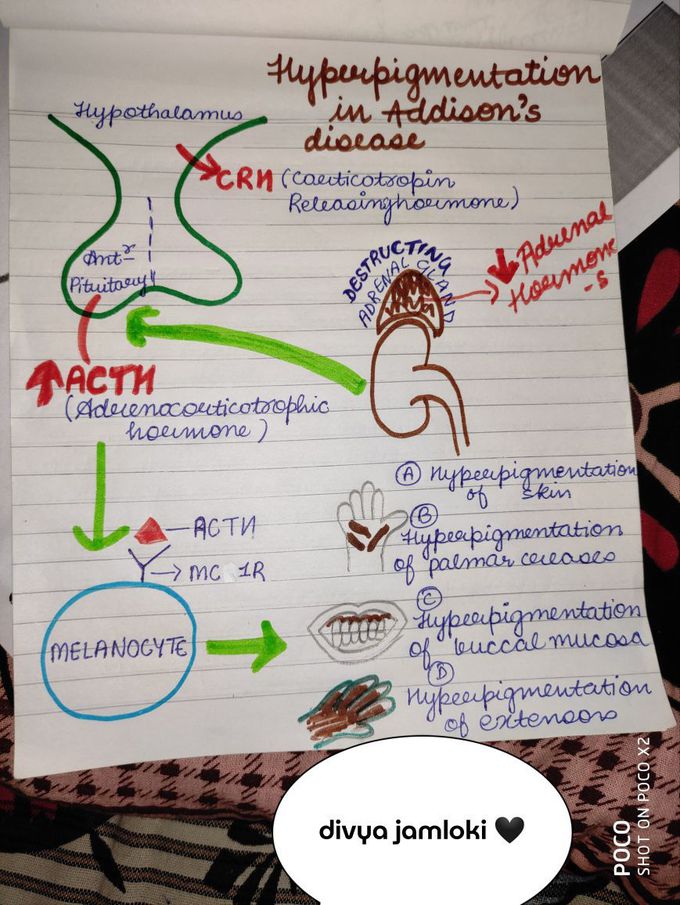 Hyperpigmentation
in Addison's
disease
Hypothalamus
CRH (Corticotropin
Releasinghormone)
Ant^r
Pituitary
DESTRUCTING
ADRENAL GLAND
↓ Adrenal
Hormone
-s
↑ACTH
(Adrenocorticotrophic
hormone)
ACTH
MC 1R
MELANOCYTE
Ⓐ Hyperpigmentation
of skin
Ⓑ
Hyperpigmentation
of palmar creases
Ⓒ
Hyperpigmentation
of buccal mucosa
Ⓓ
Hyperpigmentation
of extensors
divya jamloki 🖤
POCO
SHOT ON POCO X2